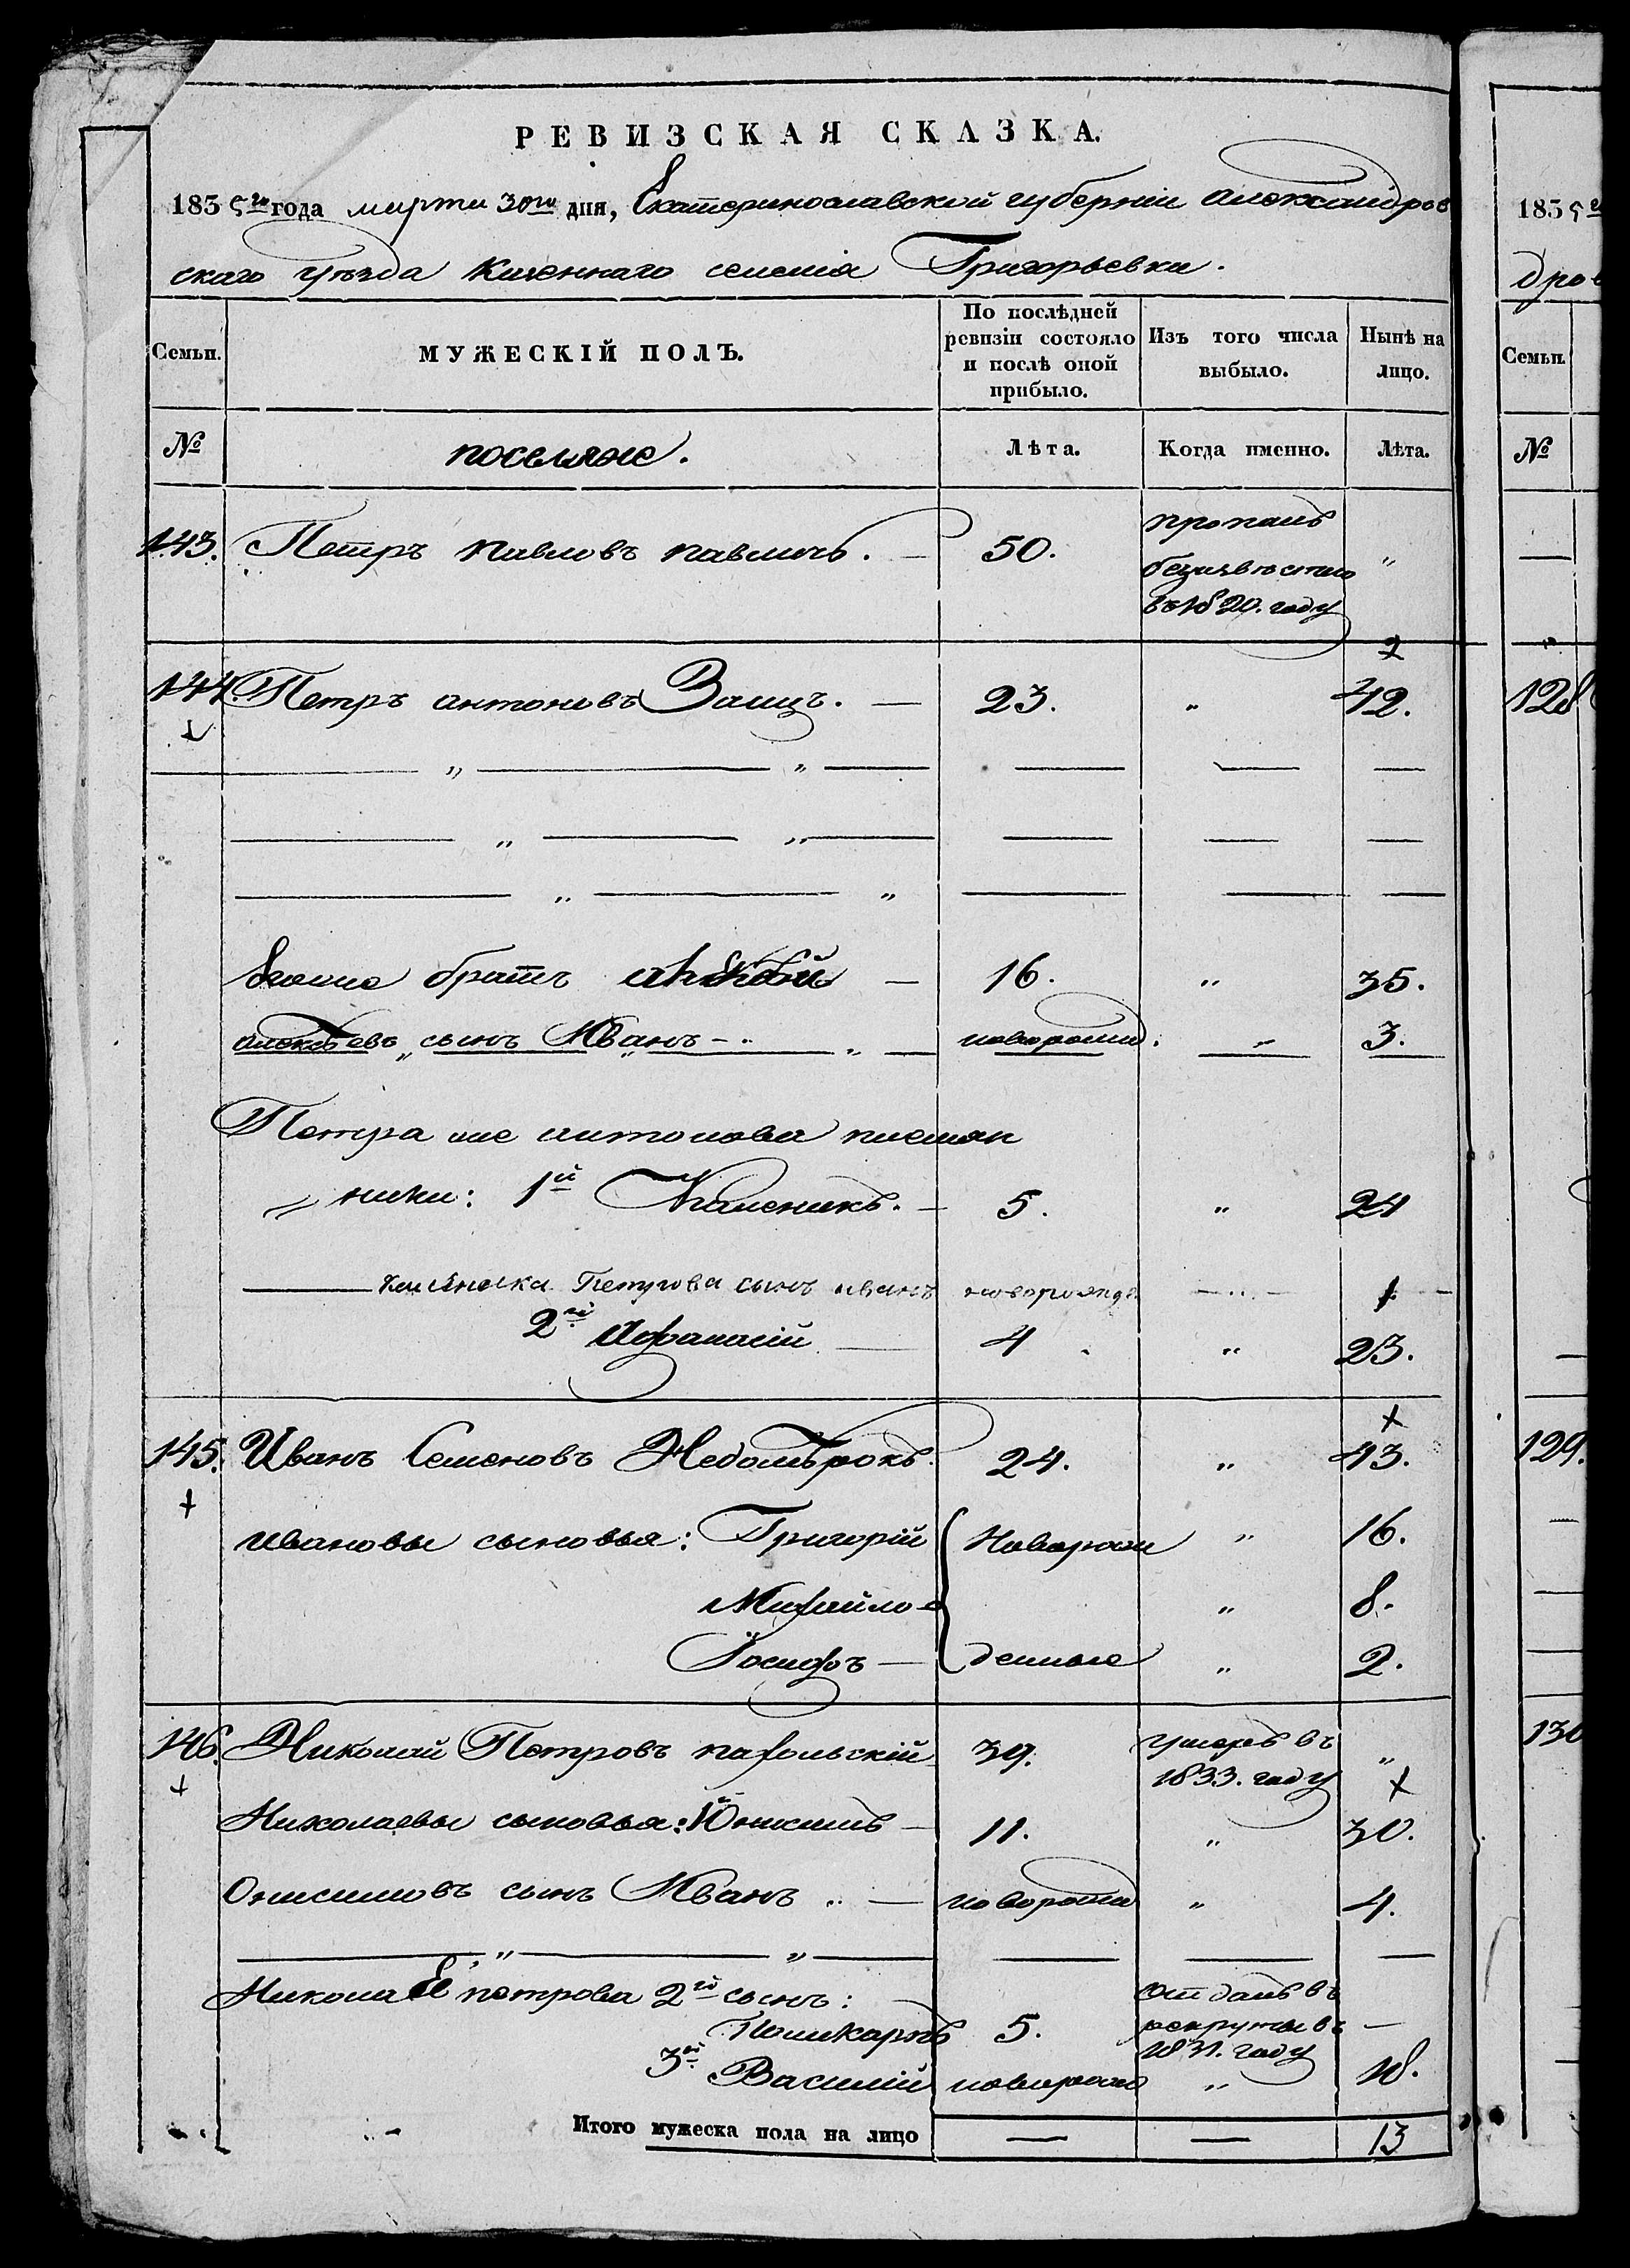 РЕВИЗСКАЯ СКАЗКА.
1835го года марта 30го дня, Екатеринославской губерніи Александров
скаго уѣзда Казеннаго селенія Григорьевки.
Семьи. МУЖЕСКІЙ ПОЛЪ. По послѣдней ревизіи состояло и послѣ оной прибыло. Изъ того числа выбыло. Нынѣ на лицо.
№ поселяне. Лѣта. Когда именно. Лѣта.
143. Петръ Павловъ 50. пропалъ безъизвѣстно въ 1820. году "
144 Петръ антоновъ Заицъ. — 23. " 42.
Егоже братъ — 16. " 35.
алексѣевъ сынъ Иванъ — новорожд. " 3.
Петра же антонова племян
ники: 1й — 5. " 24
Петрова сынъ иванъ новорожд. 1.
2й Афанасій — 4 " 23.
145. Иванъ Семеновъ 24. " 43.
Ивановы сыновья: Григорій Наворож " 16.
Михайло " 8.
Іосифъ — денные " 2.
146. Николай Петровъ 39. умеръ въ 1833. году "
Николаевы сыновья: 1й Онисимъ — 11. " 30.
Онисимовъ сынъ Иванъ — новорожд " 4.
НиколаЕ петрова 2й сынъ:
Поликарпъ 5. отданъ въ рекруты въ 1831. году —
3й Василій новорожд " 18.
Итого мужеска пола на лицо — — 13
1835го
дров
Семьи.
№
128
129.
130